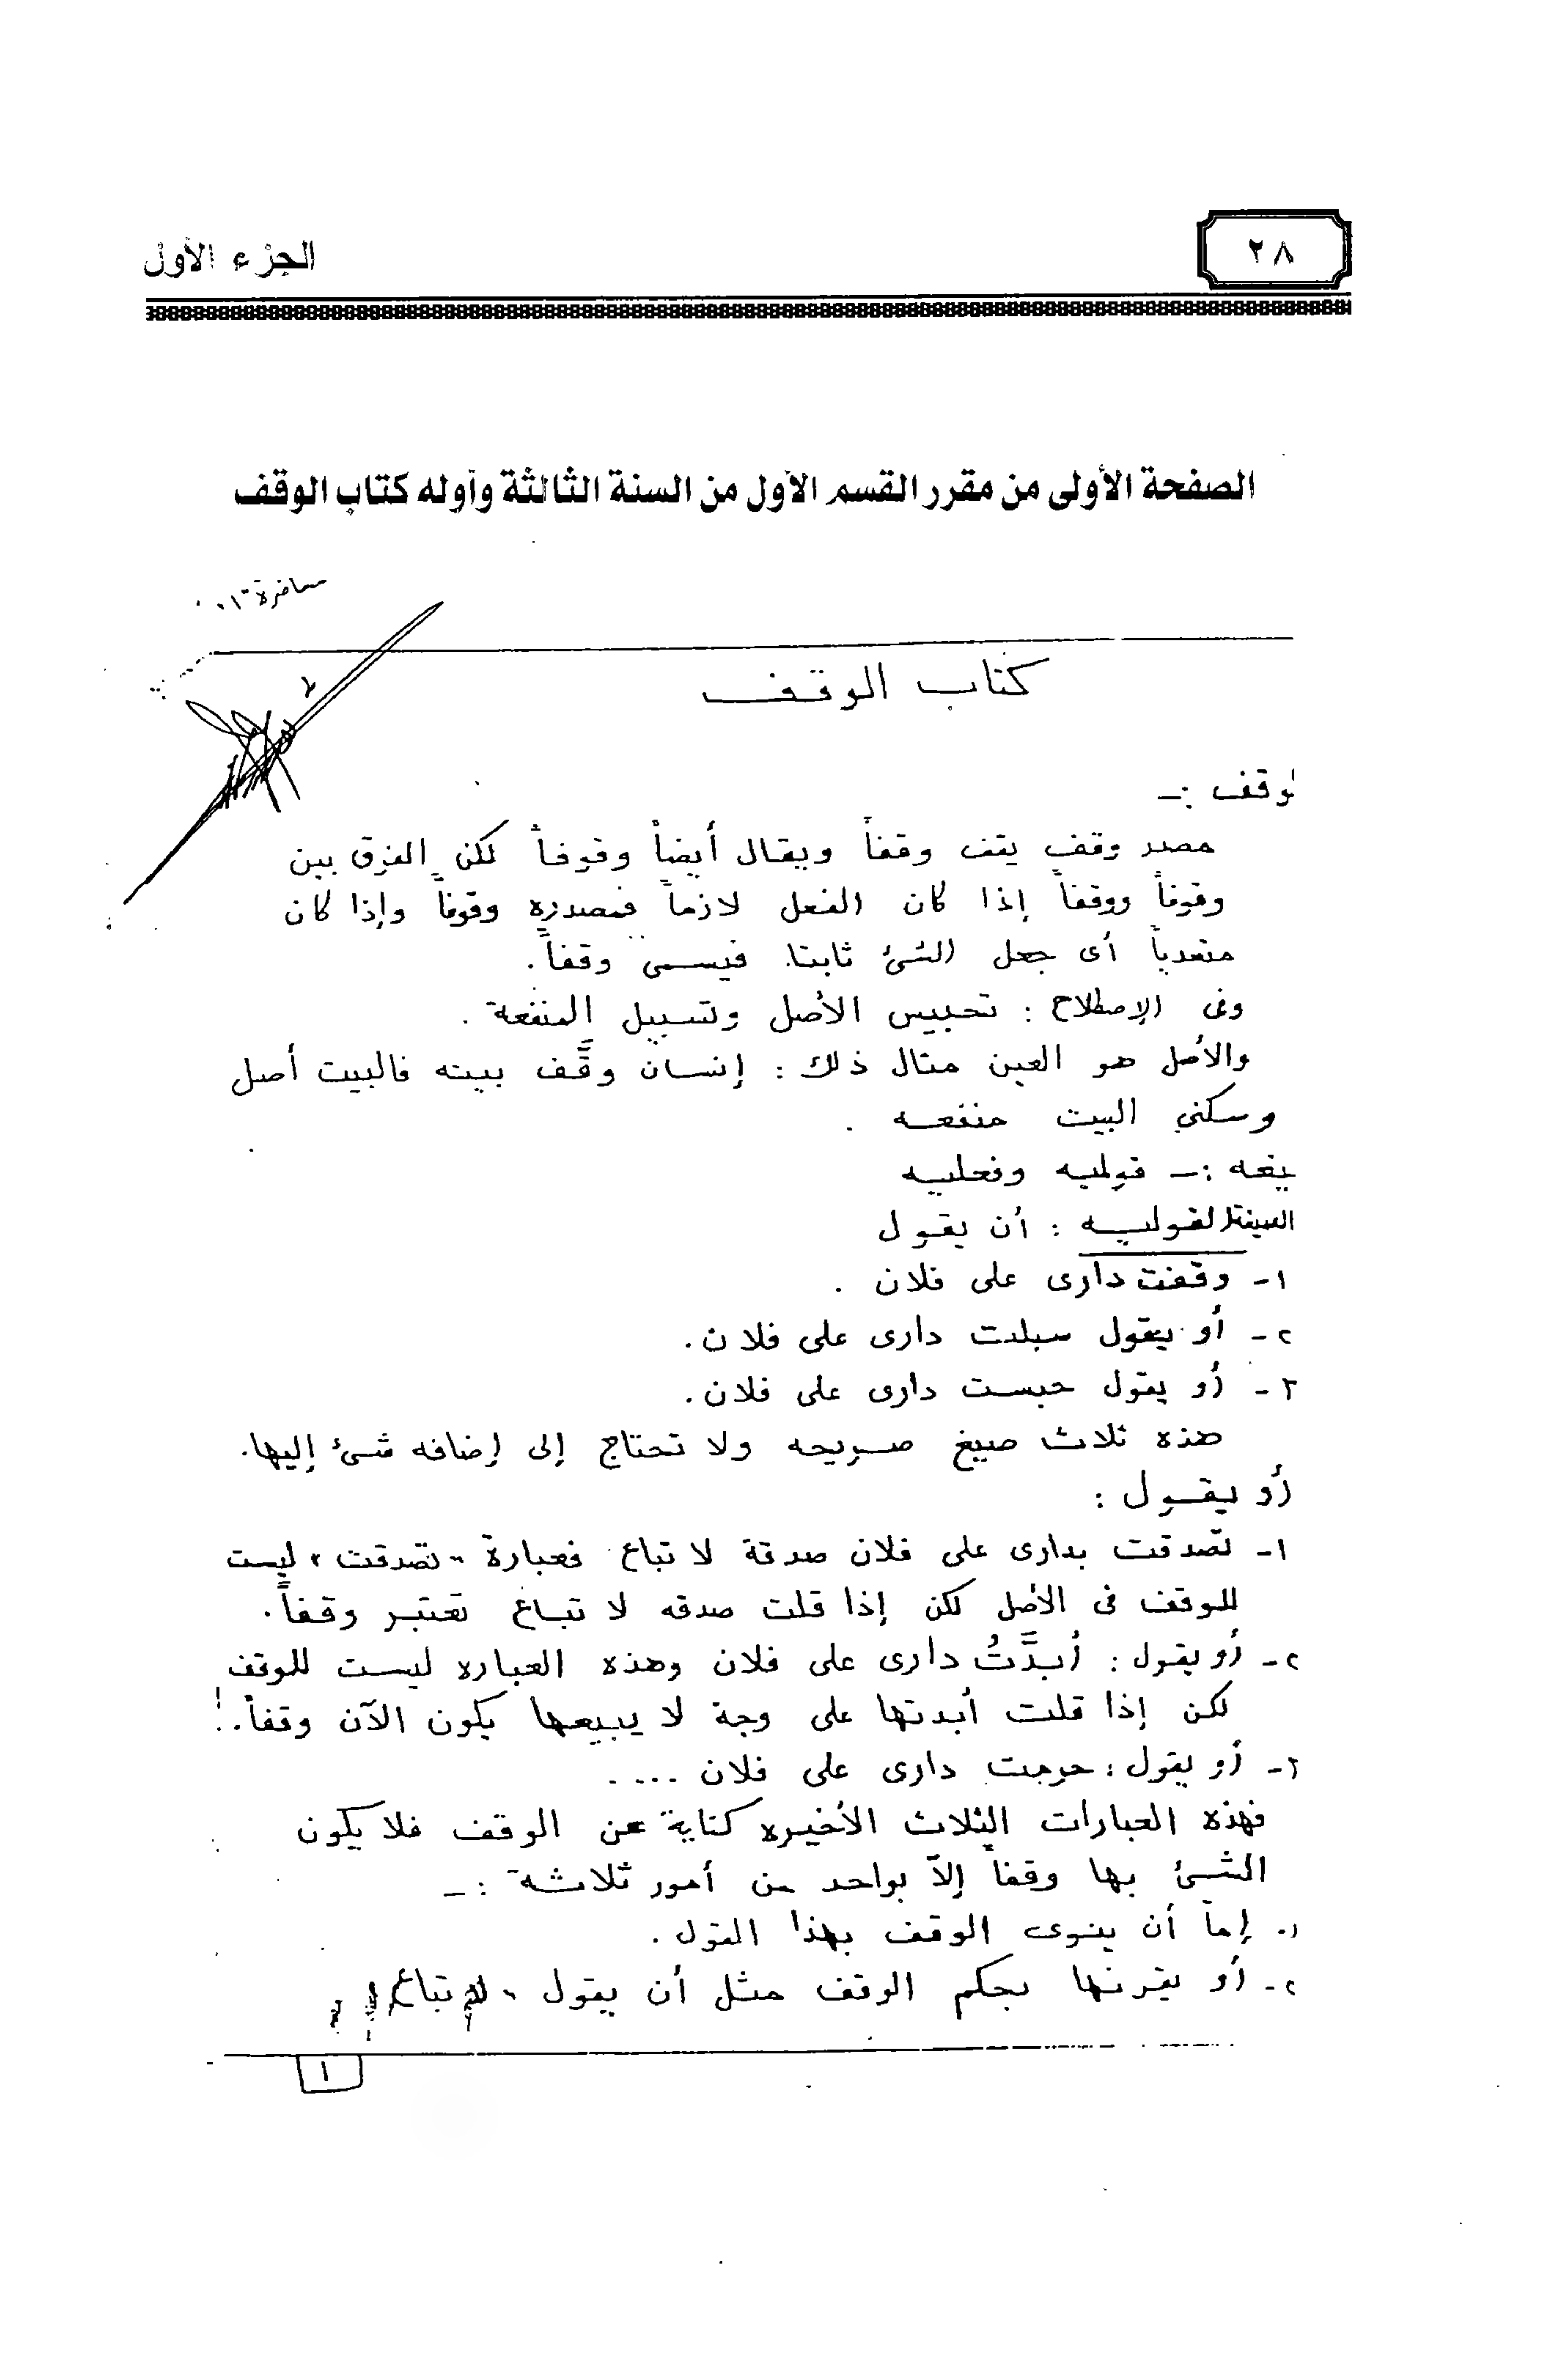 ٢٨
الجزء الأول
الصفحة الأولى من مقرر القسم الأول من السنة الثالثة وأوله كتاب الوقف
كتاب الوقف
لوقف :ـ
مصدر وقف يقف وقفاً ويقال أيضاً وقوفاً لكن الفرق بين
وقوفاً ووقفاً إذا كان الفعل لازماً فمصدره وقوفاً وإذا كان
متعدياً أى جعل الشئ ثابتا. فيسمى وقفاً.
وفى الإصطلاح : تحبيس الأصل وتسبيل المنفعة .
والأصل هو العين مثال ذلك : إنسان وقَّف بيته فالبيت أصل
وسكني البيت منفعه .
يغه :ـ قوليه وفعليه
الصيغة القوليه : أن يقول
١ـ وقفت دارى على فلان .
٢ـ أو يقول سبلت دارى على فلان.
٣ـ أو يقول حبست دارى على فلان.
هذه ثلاث صيغ صريحه ولا تحتاج إلى إضافه شئ إليها.
أو يقول :
١ـ تصدقت بدارى على فلان صدقة لا تباع فعبارة "تصدقت" ليست
للوقف فى الأصل لكن إذا قلت صدقه لا تباع تعتبر وقفاً.
٢ـ أو يقول : أبَّدْتُ دارى على فلان وهذه العباره ليست للوقف
لكن إذا قلت أبدتها على وجة لا يبيعها يكون الآن وقفاً.
٣ـ أو يقول : حرمت دارى على فلان ....
فهذه العبارات الثلاث الأخيره كناية عن الوقف فلا يكون
الشئ بها وقفاً إلاّ بواحد من أمور ثلاثة :ـ
١ـ إما أن ينوى الوقف بهذا القول .
٢ـ أو يقرنها بحكم الوقف مثل أن يقول " لا تباع
١